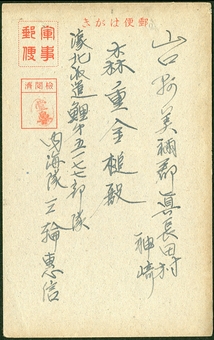 郵便はがき
軍事
郵便
検閲済
山口縣美禰郡眞長田村
神崎
森重金槌殿
濠北派遣鯉第五一七七部隊
内海隊 三輪惠信